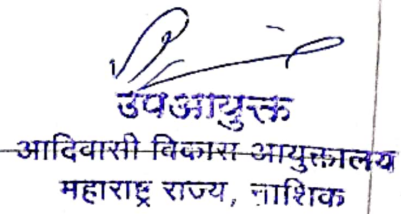 उपआयुक्त
आदिवासी विकास आयुक्तालय
महाराष्ट्र राज्य, नाशिक